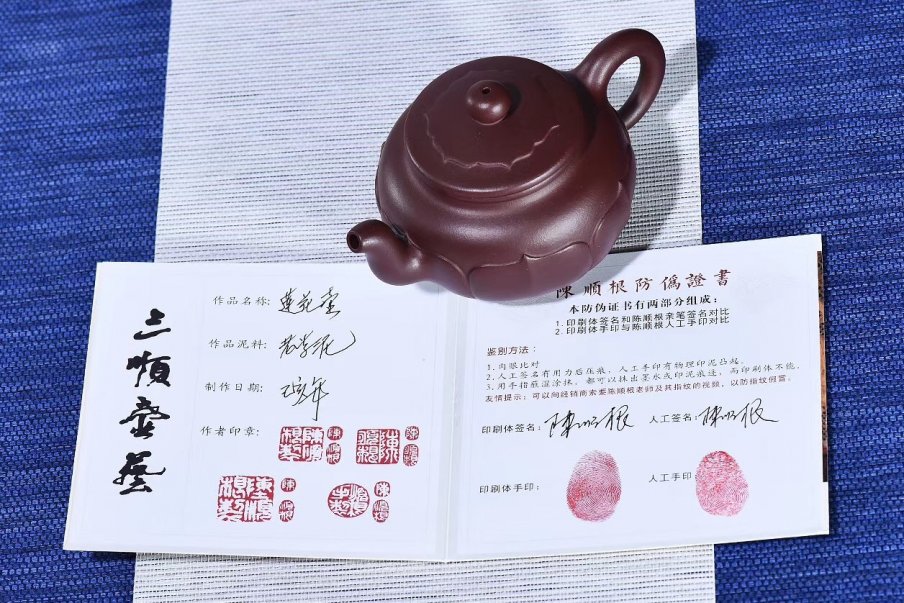 三順壺藝
作品名称: 莲花壶
作品泥料:
制作日期:
作者印章:
陳順根防偽證書
本防伪证书有两部分组成:
1.印刷体签名和陈顺根亲笔签名对比
2.印刷体手印与陈顺根人工手印对比
鉴别方法:
1.肉眼比对
2.人工签名有用力后压痕，人工手印有物理印泥凸起。
3.用手指蘸湿涂抹，都可以抹出墨水或印泥痕迹，而印刷体不能。
友情提示:可以向经销商索要陈顺根老师及其指纹的视频，以防指纹假冒。
印刷体签名: 陳顺根 人工签名: 陳顺根
印刷体手印: 人工手印: